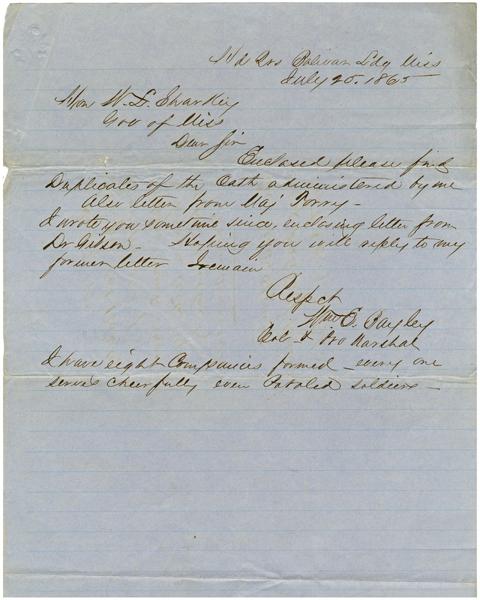 Hd Qrs Bolivar Ldg Miss
July 25. 1865
Hon W. L. Sharkey
Gov of Miss
Dear Sir
Enclosed please find
Duplicates of the Oath administered by me
Also letter from Maj
I wrote you sometime since, enclosing letter from
Dr Gibson - Hoping you will reply to my
former letter I remain
Respect
Wm E. Bayley
Col & Pro Marshal
I have eight Companies formed - every one
serves cheerfully even Paroled soldiers -